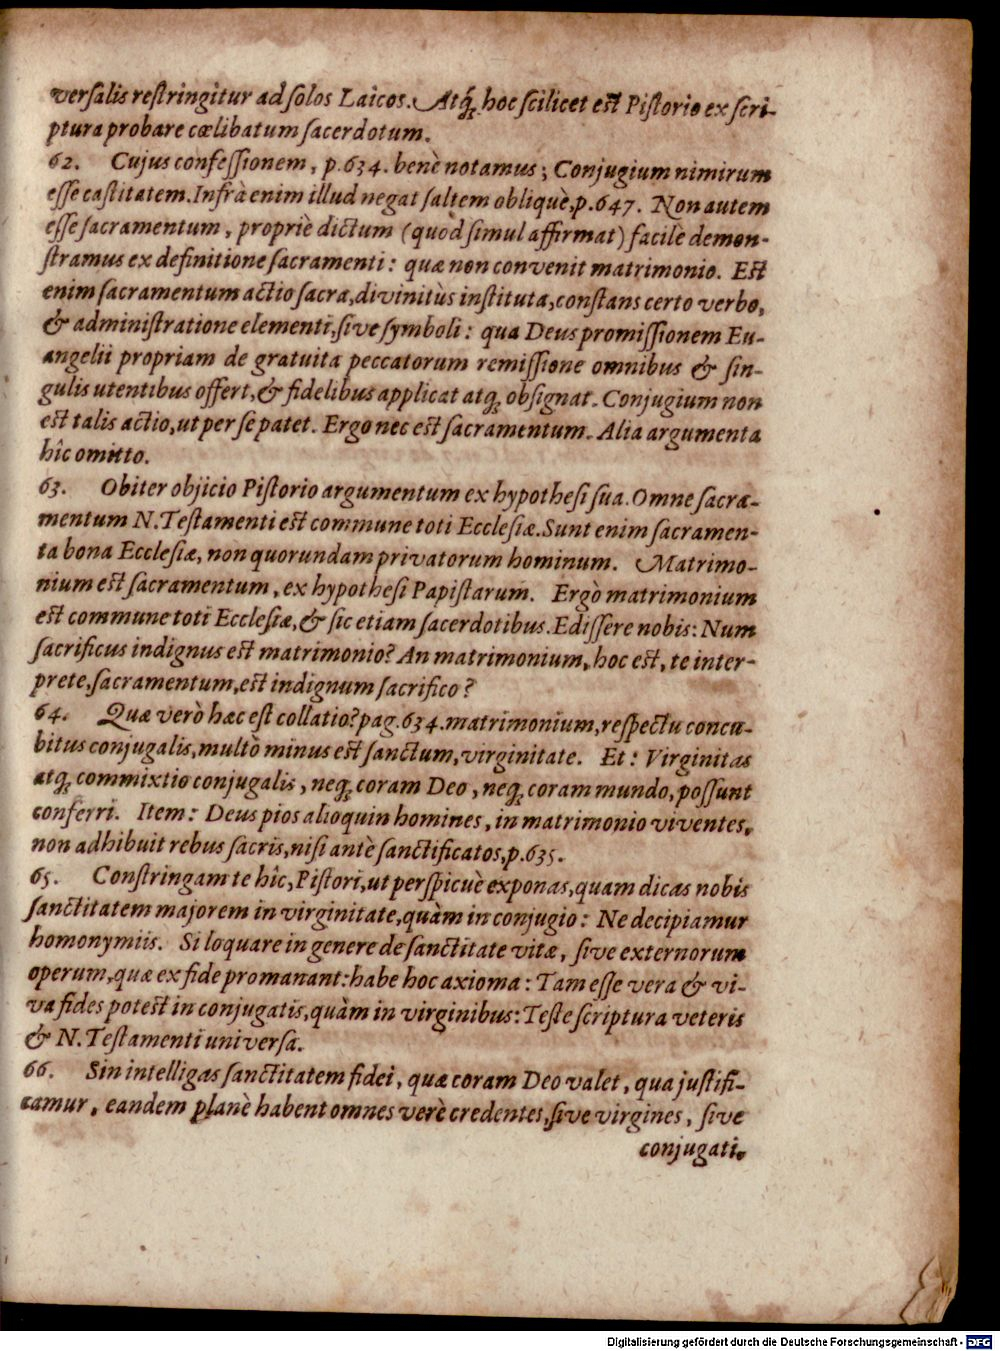 versalis restringitur ad solos Laicos. Atq́; hoc scilicet est Pistorio ex scri-
ptura probare cœlibatum sacerdotum.
62. Cujus confessionem, p.634. benè notamus; Conjugium nimirum
esse castitatem. Infrà enim illud negat saltem obliquè, p.647. Non autem
esse sacramentum, propriè dictum (quod simul affirmat) facilè demon-
stramus ex definitione sacramenti: quæ non convenit matrimonio. Est
enim sacramentum actio sacra, divinitùs instituta, constans certo verbo,
& administratione elementi, sive symboli: qua Deus promissionem Eu-
angelii propriam de gratuita peccatorum remissione omnibus & sin-
gulis utentibus offert, & fidelibus applicat atq; obsignat. Conjugium non
est talis actio, ut per se patet. Ergo nec est sacramentum. Alia argumenta
hîc omitto.
63. Obiter objicio Pistorio argumentum ex hypothesi sua. Omne sacra-
mentum N. Testamenti est commune toti Ecclesiæ. Sunt enim sacramen-
ta bona Ecclesiæ, non quorundam privatorum hominum. Matrimo-
nium est sacramentum, ex hypothesi Papistarum. Ergò matrimonium
est commune toti Ecclesiæ, & sic etiam sacerdotibus. Edissere nobis: Num
sacrificus indignus est matrimonio? An matrimonium, hoc est, te inter-
prete, sacramentum, est indignum sacrifico?
64. Quæ verò hæc est collatio? pag.634. matrimonium, respectu concu-
bitus conjugalis, multò minus est sanctum, virginitate. Et: Virginitas
atq; commixtio conjugalis, neq; coram Deo, neq; coram mundo, possunt
conferri. Item: Deus pios alioquin homines, in matrimonio viventes,
non adhibuit rebus sacris, nisi antè sanctificatos, p.635.
65. Constringam te hîc, Pistori, ut perspicuè exponas, quam dicas nobis
sanctitatem majorem in virginitate, quàm in conjugio: Ne decipiamur
homonymiis. Si loquare in genere de sanctitate vitæ, sive externorum
operum, quæ ex fide promanant: habe hoc axioma: Tam esse vera & vi-
va fides potest in conjugatis, quàm in virginibus: Teste scriptura veteris
& N. Testamenti universâ.
66. Sin intelligas sanctitatem fidei, quæ coram Deo valet, qua justifi-
camur, eandem planè habent omnes verè credentes, sive virgines, sive
conjugati.
Digitalisierung gefördert durch die Deutsche Forschungsgemeinschaft - DFG